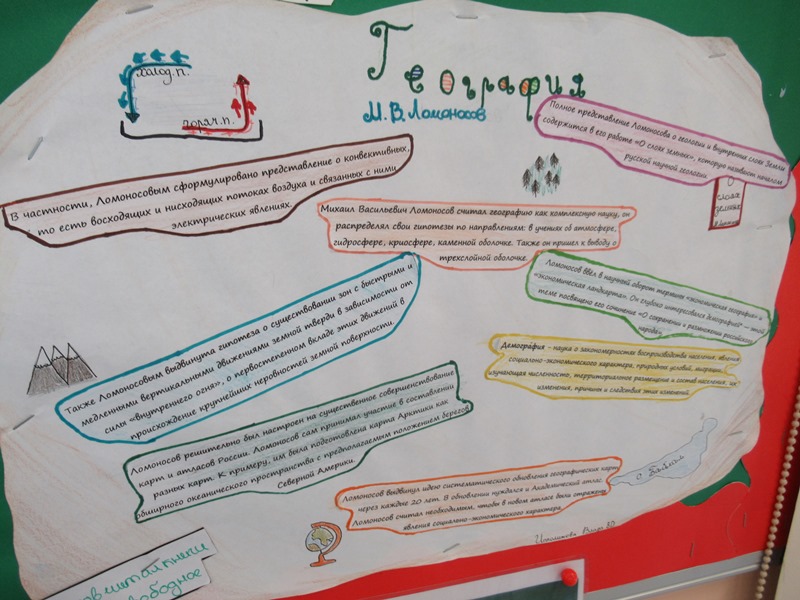 География
М. В. Ломоносов
холод.п.
горяч.п.
Полное представление Ломоносова о геологии и внутренних слоях Земли
содержится в его работе «О слоях земных», которую называют началом
русской научной геологии.
О
слоях
земных
В частности, Ломоносовым сформулировано представление о конвективных,
то есть восходящих и нисходящих потоках воздуха и связанных с ними
электрических явлениях.
Михаил Васильевич Ломоносов считал географию как комплексную науку, он
распределял свои гипотезы по направлениям: в учениях об атмосфере,
гидросфере, криосфере, каменной оболочке. Также он пришел к выводу о
трехслойной оболочке.
Ломоносов ввёл в научный оборот термин «экономическая география» и
«экономическая ландкарта». Он глубоко интересовался демографией – этой
теме посвящено его сочинение «О сохранении и размножении российского
народа».
Также Ломоносовым выдвинута гипотеза о существовании зон с быстрыми и
медленными вертикальными движениями земной тверди в зависимости от
силы «внутреннего огня», о первостепенном вкладе этих движений в
происхождение крупнейших неровностей земной поверхности.
Демография – наука о закономерностях воспроизводства населения, явления
социально-экономического характера, природных условий, миграции,
изучающая численность, территориальное размещение и состав населения, их
изменения, причины и следствия этих изменений.
Ломоносов решительно был настроен на существенное совершенствование
карт и атласов России. Ломоносов сам принимал участие в составлении
разных карт. К примеру, им была подготовлена карта Арктики как
обширного океанического пространства с предполагаемым положением берегов
Северной Америки.
Ломоносов выдвинул идею систематического обновления географических карт
через каждые 20 лет. В обновлении нуждался и Академический атлас.
Ломоносов считал необходимым, чтобы в новом атласе были отражены
явления социально-экономического характера.
о. Байкал